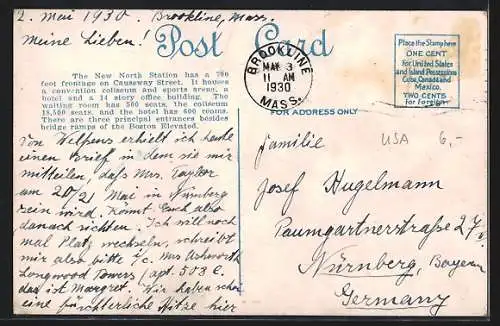 2. Mai 1930. Brookline, Mass.
Meine Lieben!
Post Card
The New North Station has a 790
foot frontage on Causeway Street. It houses
a convention coliseum and sports arena, a
hotel and a 14 story office building. The
waiting room has 500 seats, the coliseum
18,500 seats, and the hotel has 600 rooms.
There are three principal entrances besides
bridge ramps of the Boston Elevated.
Von Welfens erhielt ich heute
einen Brief in dem sie mir
mitteilen, daß Mrs. Taylor
am 20/21 Mai in Nürnberg
sein wird. Könnt Euch also
danach richten. Ich will noch
mal Platz wechseln, schreibt
mir also bitte c/o Mrs Ashworth
Longwood Towers (apt. 508 C.
das ist Margret. Wir haben schon
eine fürchterliche Hitze hier
BROOKLINE
MAY 3
11 AM
1930
MASS.
Place the Stamp here
ONE CENT
for United States
and Island Possessions
Cuba, Canada and
Mexico.
TWO CENTS
for Foreign
FOR ADDRESS ONLY
USA 6,-
Familie
Josef Hugelmann
Paumgartnerstraße 27
Nürnberg, Bayern
Germany